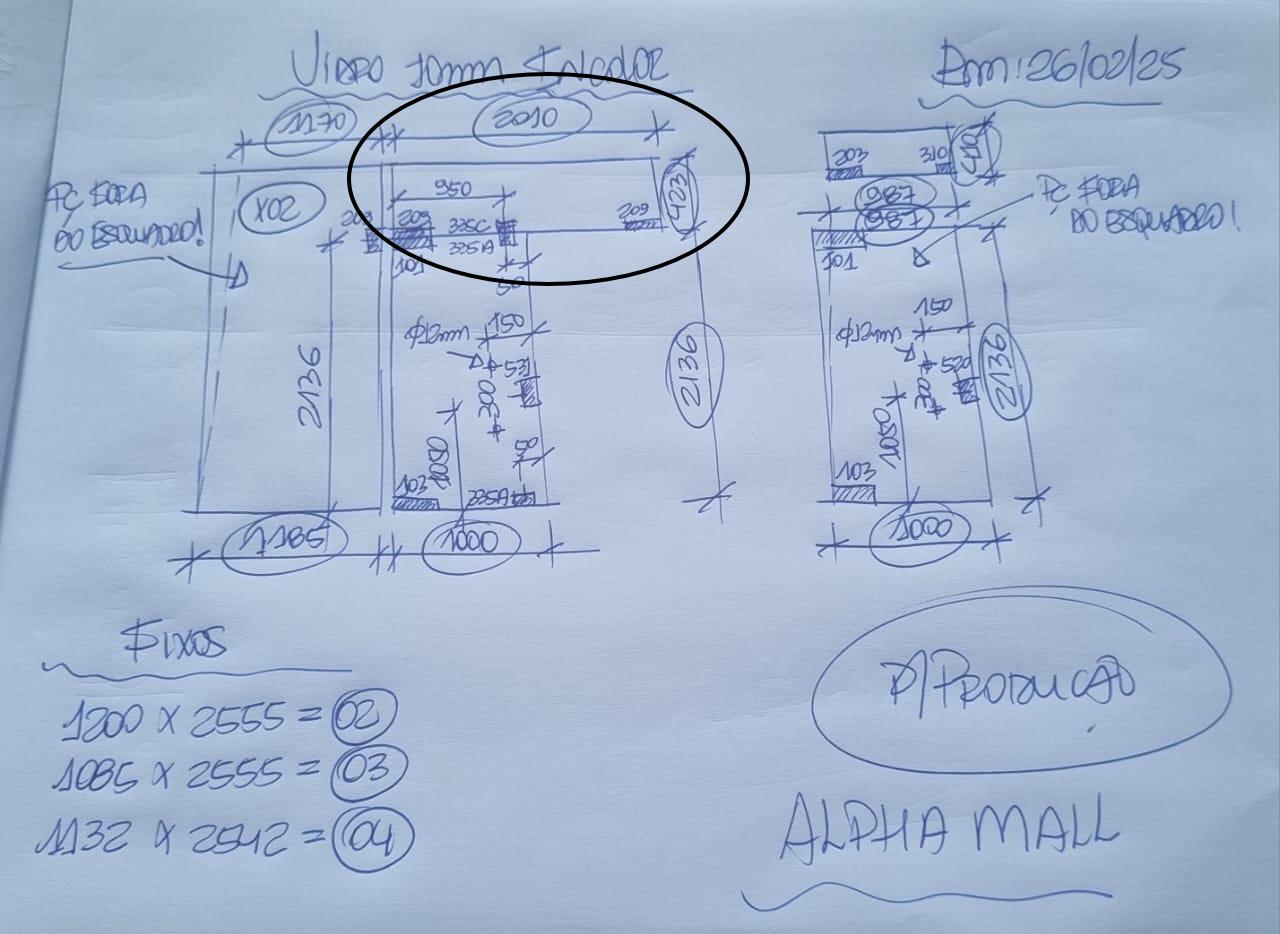 VIDRO 10mm INCOLOR
Em: 26/02/25
1170
2010
PÇ FORA
DO ESQUADRO!
X02
950
209
335C
209
423
335A
101
50
203
310
410
987
987
PÇ FORA
DO ESQUADRO!
101
2136
150
531
300
1050
50
103
335A
2136
150
520
300
1050
103
2136
1185
1000
1000
FIXOS
1200 X 2555 = 02
1085 X 2555 = 03
1132 X 2542 = 04
P/ PRODUCAO
ALPHA MALL